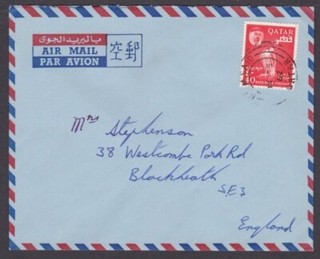 بالبريد الجوى
AIR MAIL
PAR AVION
空郵
QATAR
قطر
40
Mrs Stephenson
38 Westcombe Park Rd
Blackheath
S.E.3
England